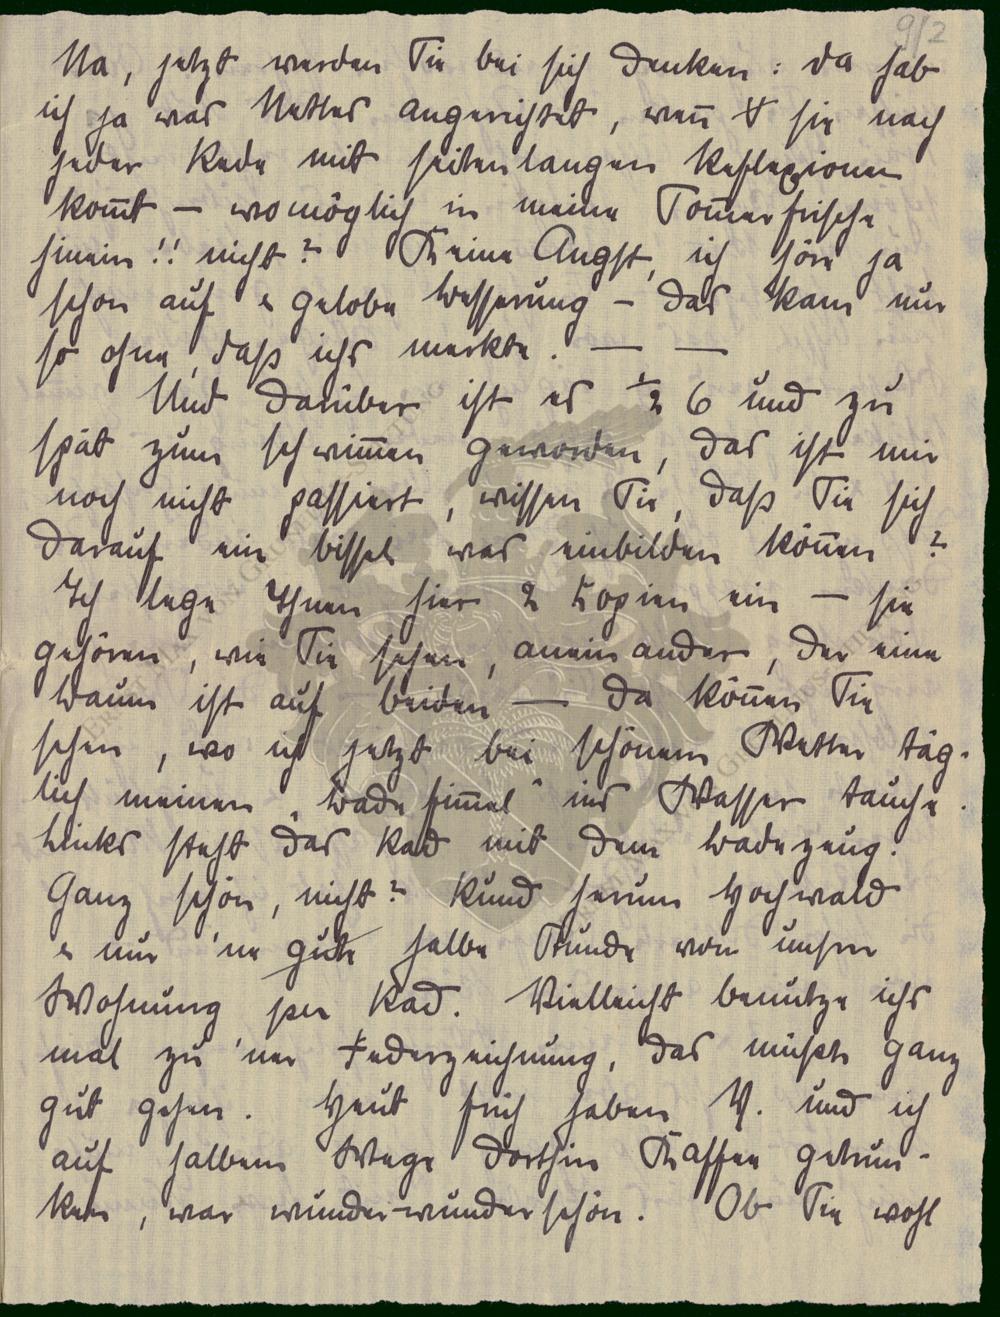 9/2
Na, jetzt werden Sie bei sich denken: da hab
ich ja was Nettes angerichtet, weñ sie nach
jeder Rede mit seitenlangen Reflexionen
kom̃t — womöglich in meine Som̃erfrische
hinein!! nicht? Keine Angst, ich höre ja
schon auf & gelobe Besserung – das kam nur
so ohne, daß ichs merkte. — —
Und darüber ist es ½ 6 und zu
spät zum schwim̃en geworden, das ist mir
noch nicht passiert, wissen Sie, daß Sie sich
darauf ein bissel was einbilden köñen?
Ich lege Ihnen hier 2 Kopien ein — sie
gehören, wie Sie sehen, aneinander, der eine
Baum ist auf beiden — da köñen Sie
sehen, wo ich jetzt bei schönem Wetter täg-
lich meinen „Badefim̃el“ ins Wasser tauche.
Links steht das Rad mit dem Badezeug.
Ganz schön, nicht? Rund herum Hochwald
& nur 'ne gute halbe Stunde von unsrer
Wohnung per Rad. Vielleicht benutze ichs
mal zu 'ner Federzeichnung, das müßte ganz
gut gehen. Heut früh haben V. und ich
auf halbem Wege dorthin Kaffee getrun-
ken, war wunder-wunderschön. Ob Sie wohl